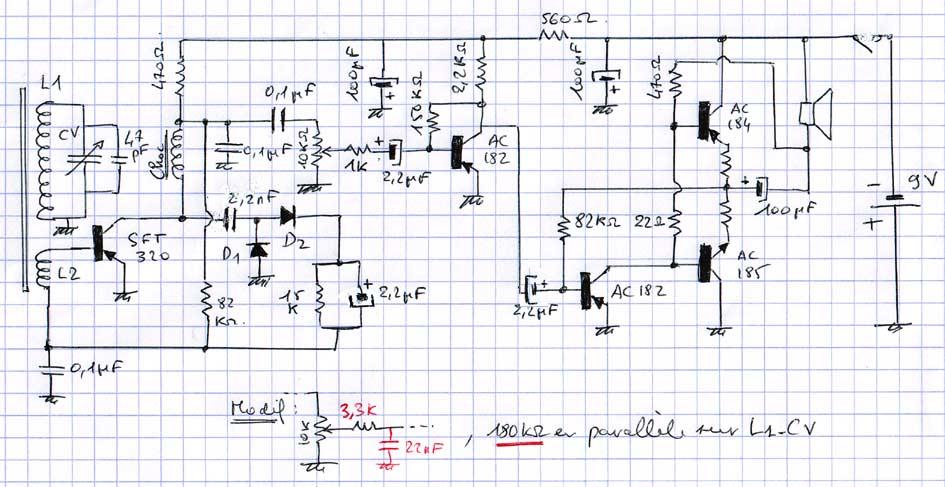 560Ω
L1
470Ω
CV
47
pF
0,1µF
100µF
150KΩ
2,2KΩ
100µF
470Ω
AC
184
Choc
0,1µF
10KΩ
1K
2,2µF
AC
182
- 9V
+
2,2nF
SFT
320
D1
D2
82KΩ
22Ω
100µF
AC
185
L2
82
KΩ
15
K
2,2µF
2,2µF
AC182
0,1µF
Modif :
3,3K
10K
22nF
, 180KΩ en parallèle sur L1-CV